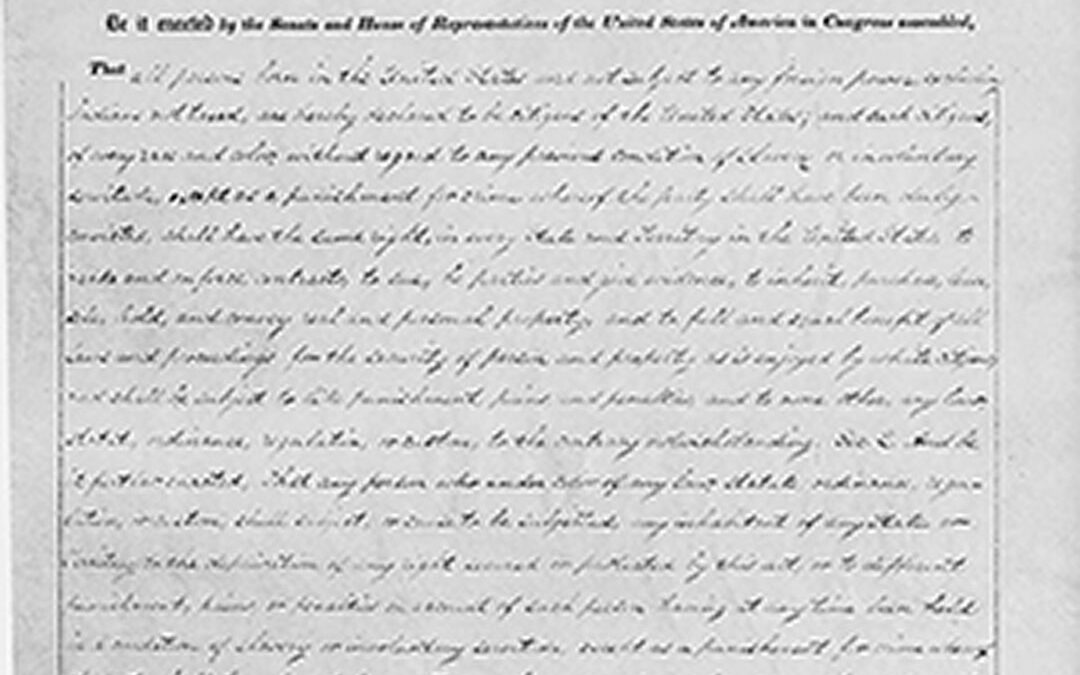 Be it enacted by the Senate and House of Representatives of the United States of America in Congress assembled,
That all persons born in the United States and not subject to any foreign power, excluding
Indians not taxed, are hereby declared to be citizens of the United States; and such citizens,
of every race and color, without regard to any previous condition of slavery or involuntary
servitude, except as a punishment for crime whereof the party shall have been duly
convicted, shall have the same right, in every State and Territory in the United States, to
make and enforce contracts, to sue, be parties and give evidence, to inherit, purchase, lease,
sell, hold, and convey real and personal property, and to full and equal benefit of all
laws and proceedings for the security of person and property as is enjoyed by white citizens,
and shall be subject to like punishment, pains and penalties and to none other, any law
statute, ordinance, regulation, or custom, to the contrary notwithstanding. Sec 2. And be
it further enacted, That any person who under color of any law, statute, ordinance, regula-
tion, or custom, shall subject, or cause to be subjected, any inhabitant of any State or
Territory to the deprivation of any right secured or protected by this act, or to different
punishment, pains or penalties on account of such person having at any time been held
in a condition of slavery or involuntary servitude, except as a punishment for crime